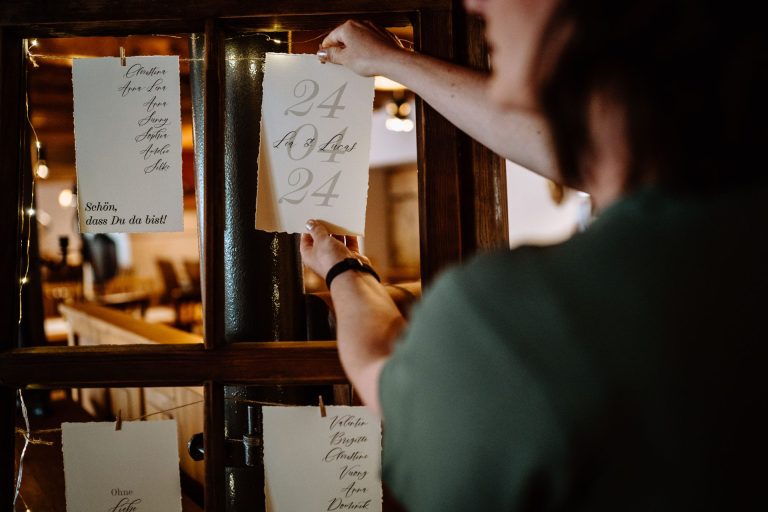 Christina
Anna-Lena
Anna
Sunny
Sophia
Amelie
Silke
Schön,
dass Du da bist!
24
04
Lea & Lucas
24
Ohne
Liebe
Valentin
Brigitte
Christine
Vuong
Anna
Dominik